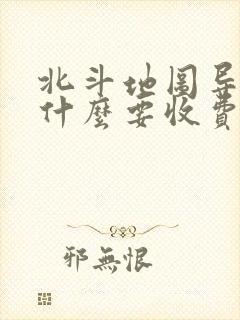 北斗地圖导
什麼要收費
邪無恨